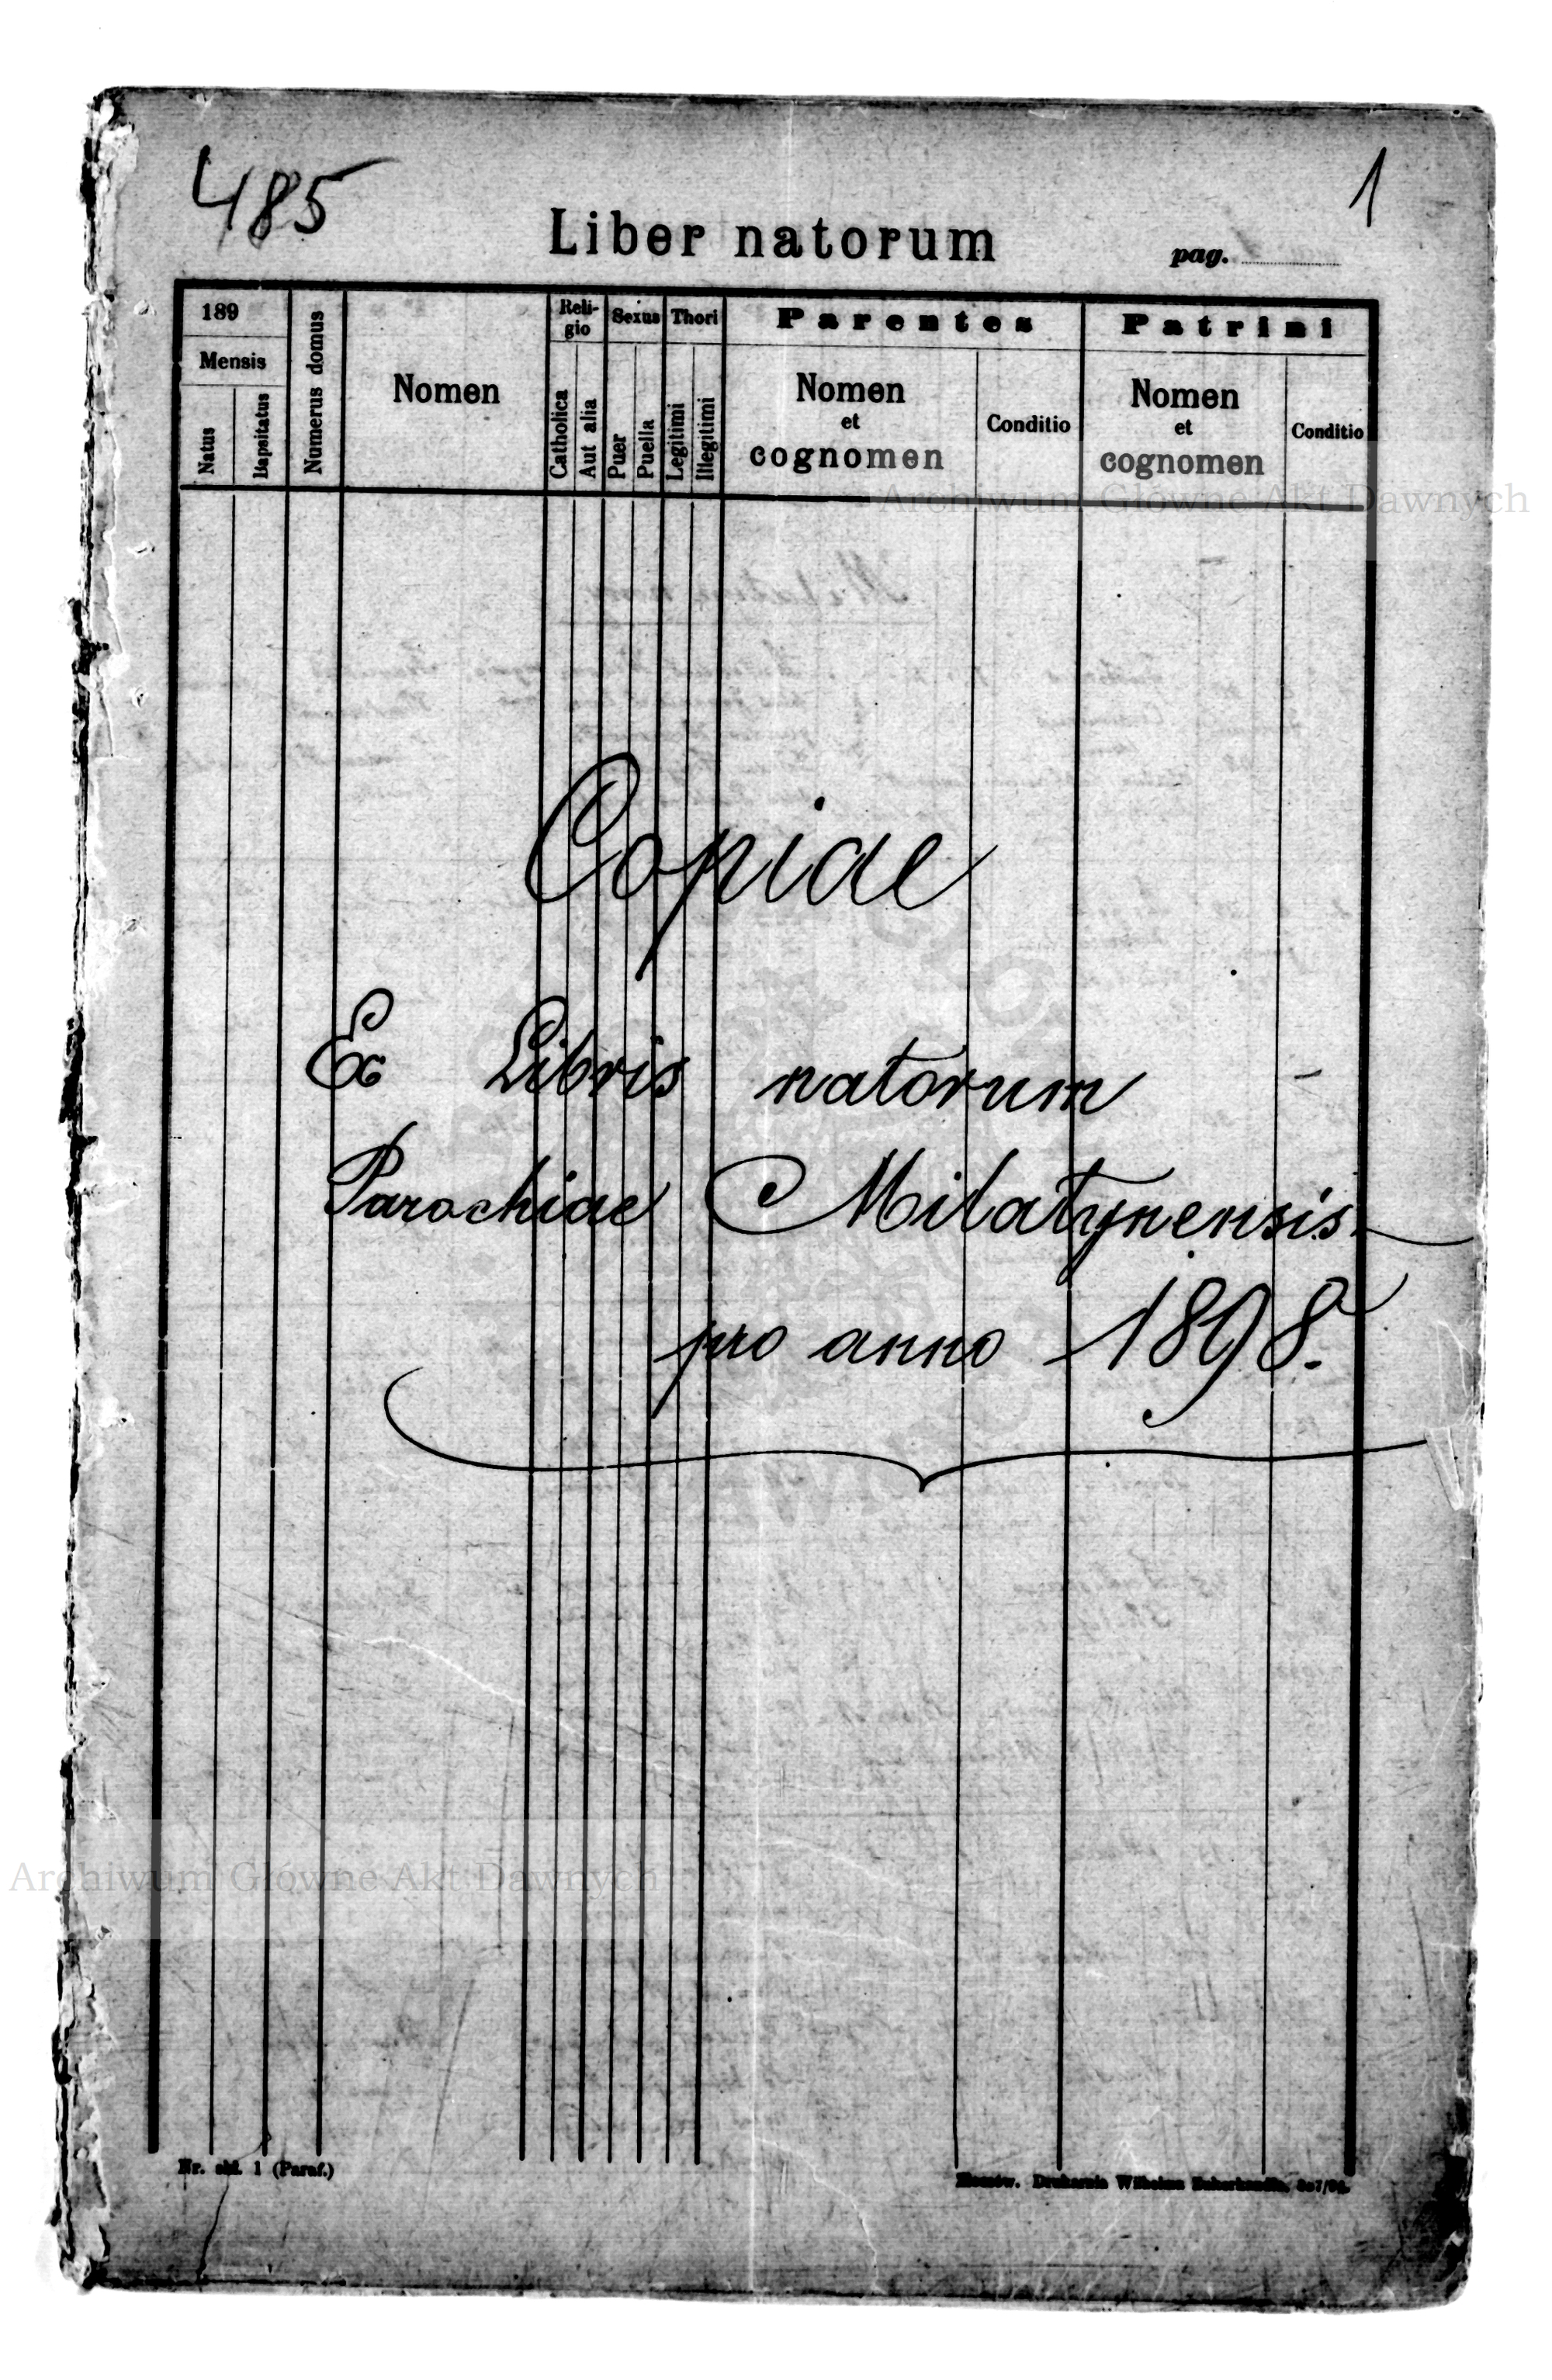 485
1
Liber natorum
pag.
189
Mensis
Natus
Bapsitatus
Numerus domus
Nomen
Reli-
gio
Catholica
Aut alia
Sexus
Puer
Puella
Thori
Legitimi
Illegitimi
Parentes
Nomen
et
cognomen
Conditio
Patrini
Nomen
et
cognomen
Conditio
Archiwum Główne Akt Dawnych
Copiae
Ex Libris natorum
Parochiae Milatynensis
pro anno 1898.
Archiwum Główne Akt Dawnych
Nr. 1 (Paraf.)
Drukarnia Wilhelma